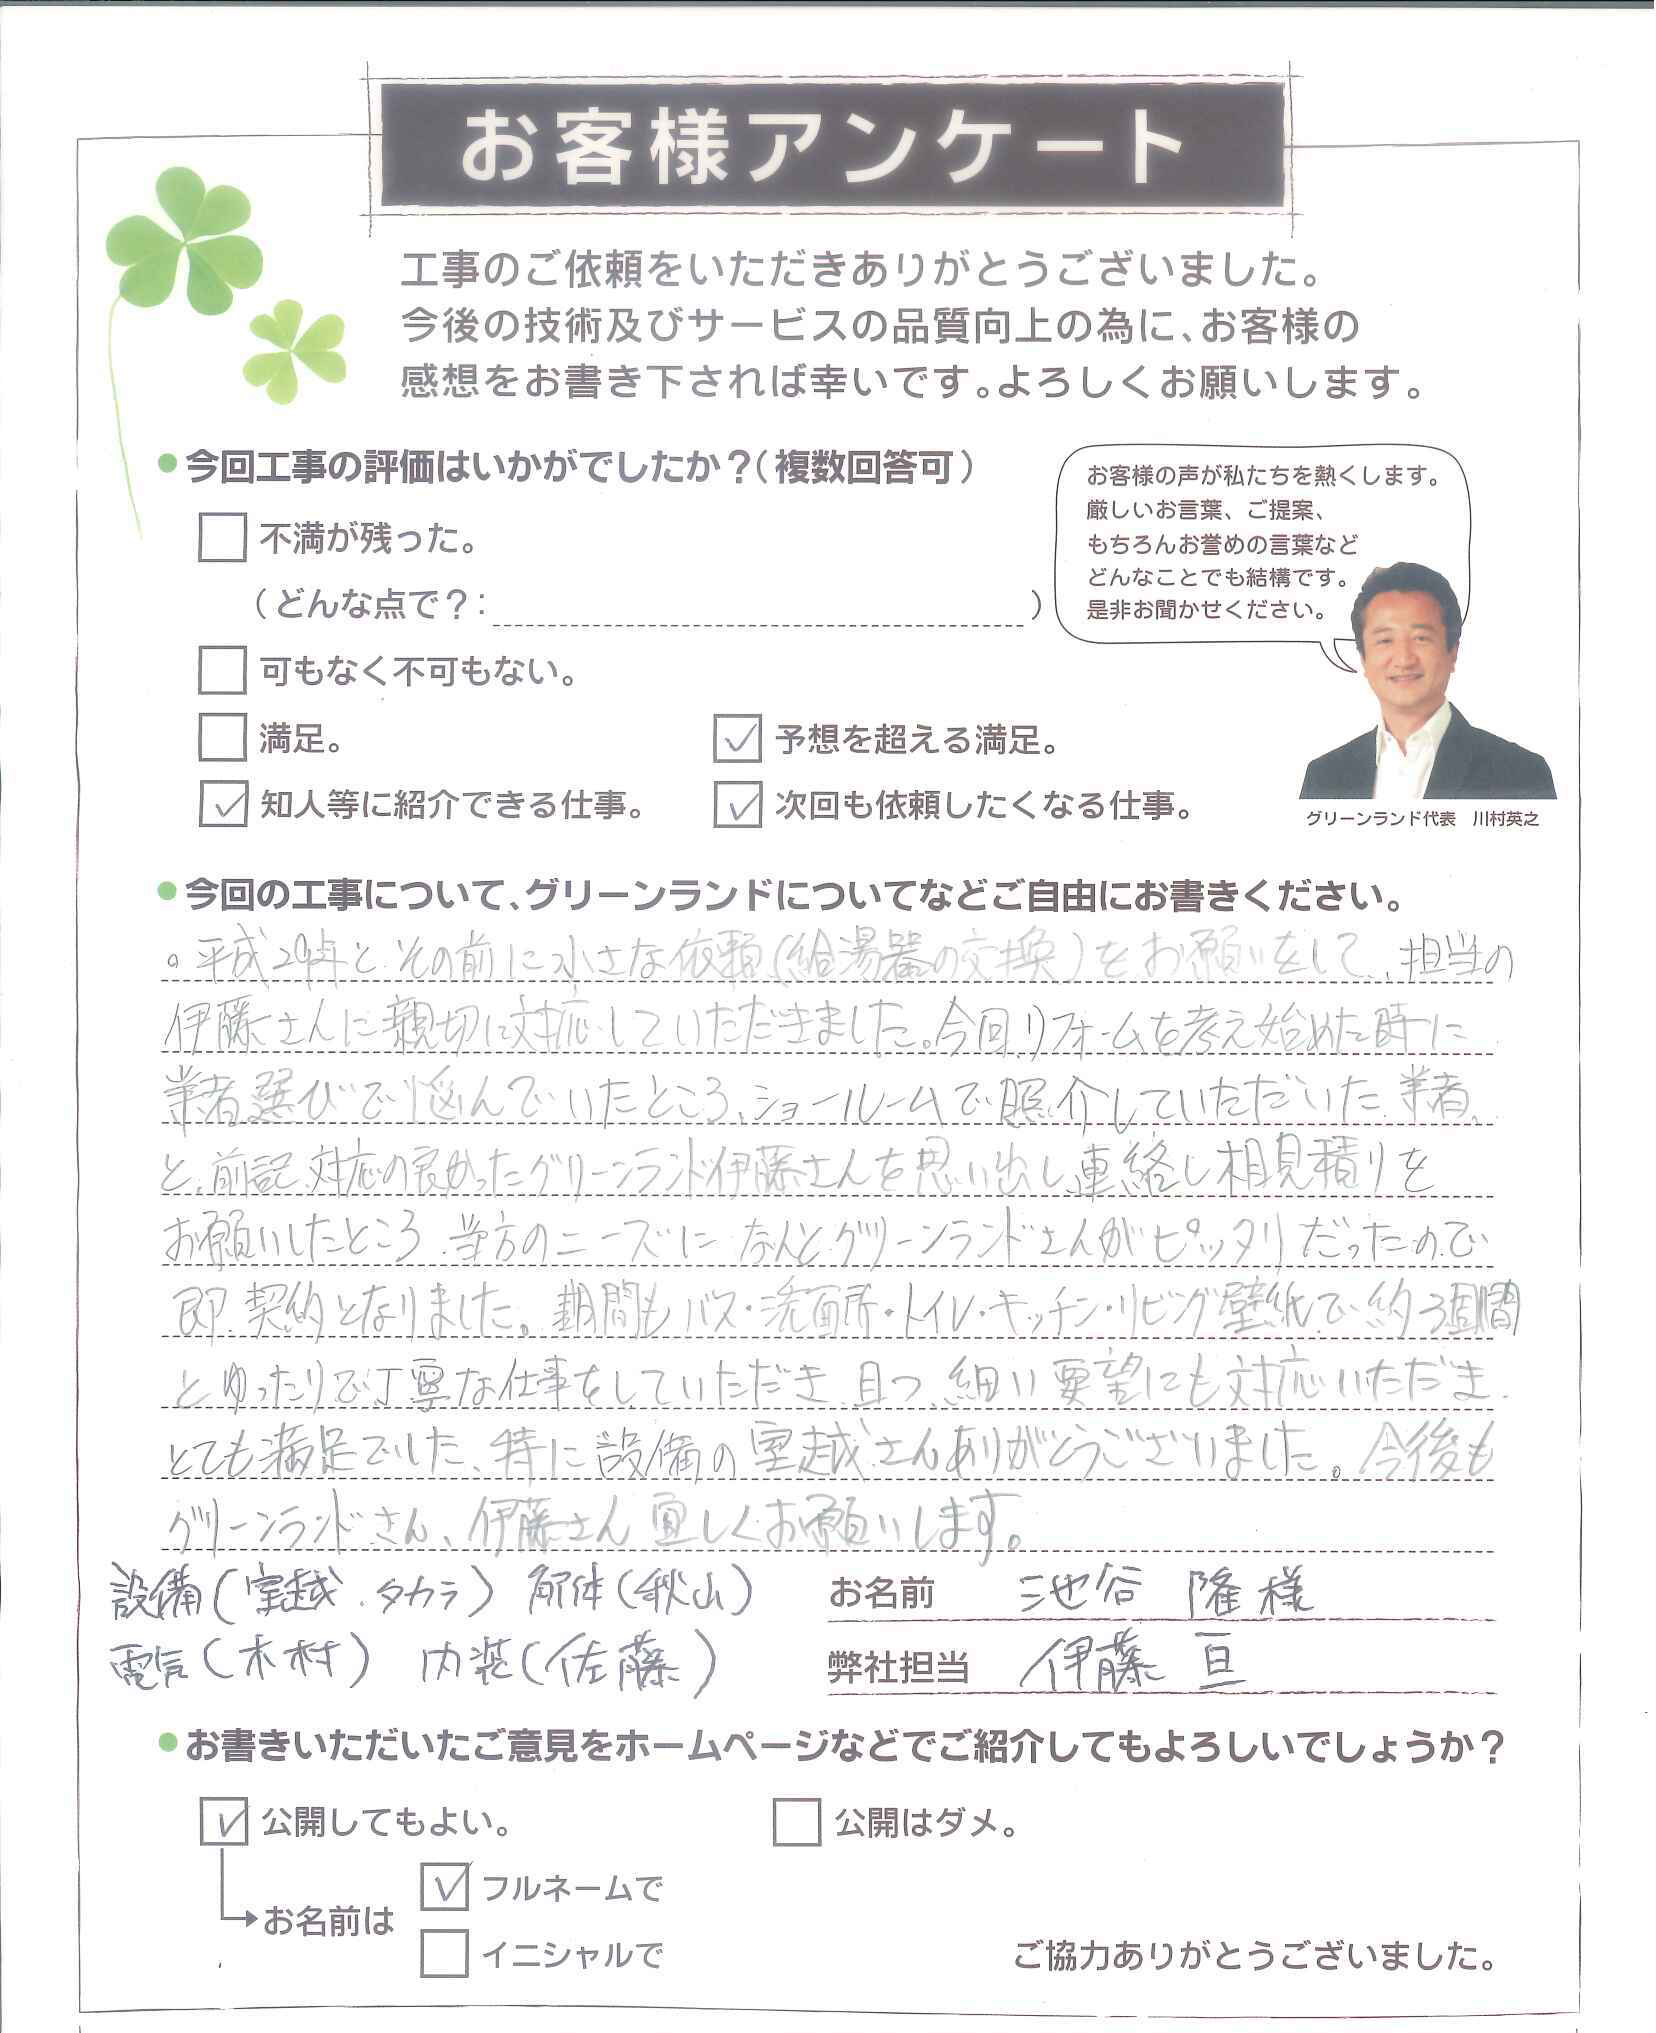 お客様アンケート
工事のご依頼をいただきありがとうございました。
今後の技術及びサービスの品質向上の為に、お客様の
感想をお書き下されば幸いです。よろしくお願いします。
●今回工事の評価はいかがでしたか？（複数回答可）
不満が残った。
（どんな点で？：　）
可もなく不可もない。
満足。
✓予想を超える満足。
✓知人等に紹介できる仕事。
✓次回も依頼したくなる仕事。
お客様の声が私たちを熱くします。
厳しいお言葉、ご提案、
もちろんお誉めの言葉など
どんなことでも結構です。
是非お聞かせください。
グリーンランド代表　川村英之
●今回の工事について、グリーンランドについてなどご自由にお書きください。
。平成29年と、その前に小さな依頼(給湯器の交換)をお願いをして、担当の
伊藤さんに親切に対応していただきました。今回、リフォームを考え始めた時に
業者選びで悩んでいたところ、ショールームで照介していただいた業者、
と、前記、対応の良かったグリーンランド伊藤さんを思い出し、連絡し相見積りを
お願いしたところ、当方のニーズに、なんとグリーンランドさんがピッタリだったので
即、契約となりました。期間もバス・洗面所・トイレ・キッチン・リビング壁紙で約3週間
とゆったりで丁寧な仕事をしていただき、且つ、細い要望にも対応いただき
とても満足でした、特に設備の室越さんありがとうございました。今後も
グリーンランドさん、伊藤さん宜しくお願いします。
設備(室越、タカラ) 解体(秋山)
電気(木村) 内装(佐藤)
お名前　池谷 隆様
弊社担当　伊藤 亘
●お書きいただいたご意見をホームページなどでご紹介してもよろしいでしょうか？
✓公開してもよい。
公開はダメ。
お名前は
✓フルネームで
イニシャルで
ご協力ありがとうございました。